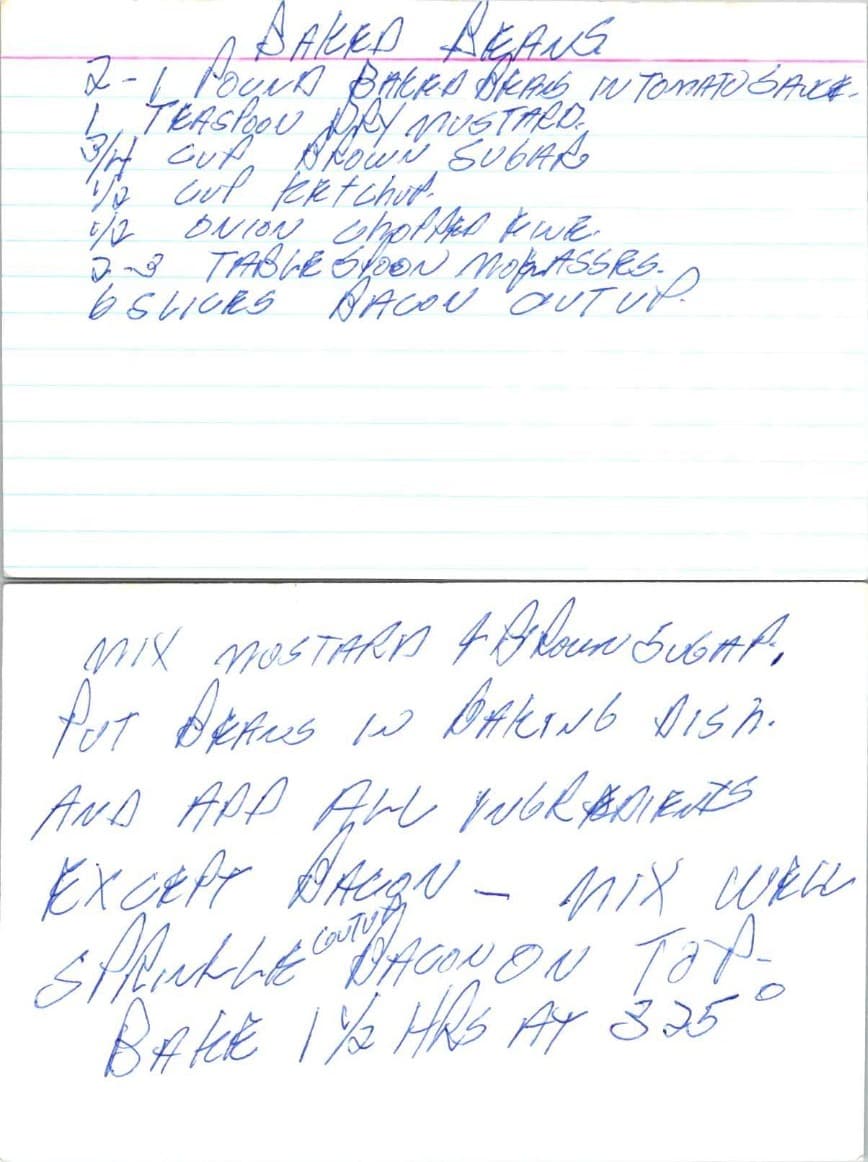 BAKED BEANS
2-1 POUND BAKED BEANS IN TOMATO SAUCE.
1 TEASPOON DRY MUSTARD.
3/4 CUP BROWN SUGAR
1/2 CUP KETCHUP.
1/2 ONION CHOPPED FINE.
2-3 TABLESPOON MOLASSES.
6 SLICES BACON CUT UP.
MIX MUSTARD & BROWN SUGAR.
PUT BEANS IN BAKING DISH.
AND ADD ALL INGREDIENTS
EXCEPT BACON - MIX WELL
SPRINKLE (CUT UP) BACON ON TOP-
BAKE 1 1/2 HRS AT 325°